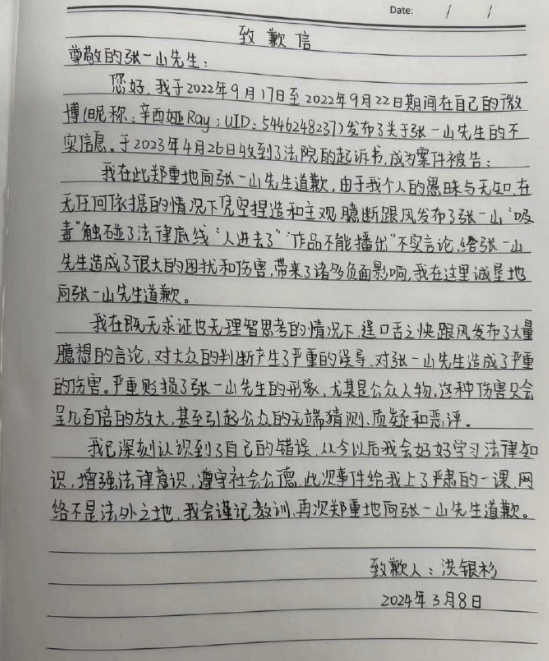 Date: / /
致歉信
尊敬的张一山先生：
您好，我于2022年9月17日至2022年9月22日期间在自己的微
博(昵称：辛西娅Ray；UID：5446248237)发布了关于张一山先生的不
实信息。于2023年4月26日收到了法院的起诉书，成为案件被告：
我在此郑重地向张一山先生道歉，由于我个人的愚昧与无知，在
无任何依据的情况下凭空捏造和主观臆断跟风发布了张一山“吸
毒”触碰了法律底线“人进去了”“作品不能播出”不实言论，给张一山
先生造成了很大的困扰和伤害，带来了诸多负面影响，我在这里诚垦地
向张一山先生道歉。
我在既无求证也无理智思考的情况下，逞口舌之快跟风发布了大量
臆想的言论，对大众的判断产生了严重的误导，对张一山先生造成了严重
的伤害。严重贬损了张一山先生的形象，尤其是公众人物，这种伤害只会
呈几百倍的放大，甚至引起公众的无端猜测、质疑和恶评。
我已深刻认识到了自己的错误，从今以后我会好好学习法律知
识，增强法律意识，遵守社会公德，此次事件给我上了严肃的一课，网
络不是法外之地，我会谨记教训，再次郑重地向张一山先生道歉。
致歉人：洪银杉
2024年3月8日